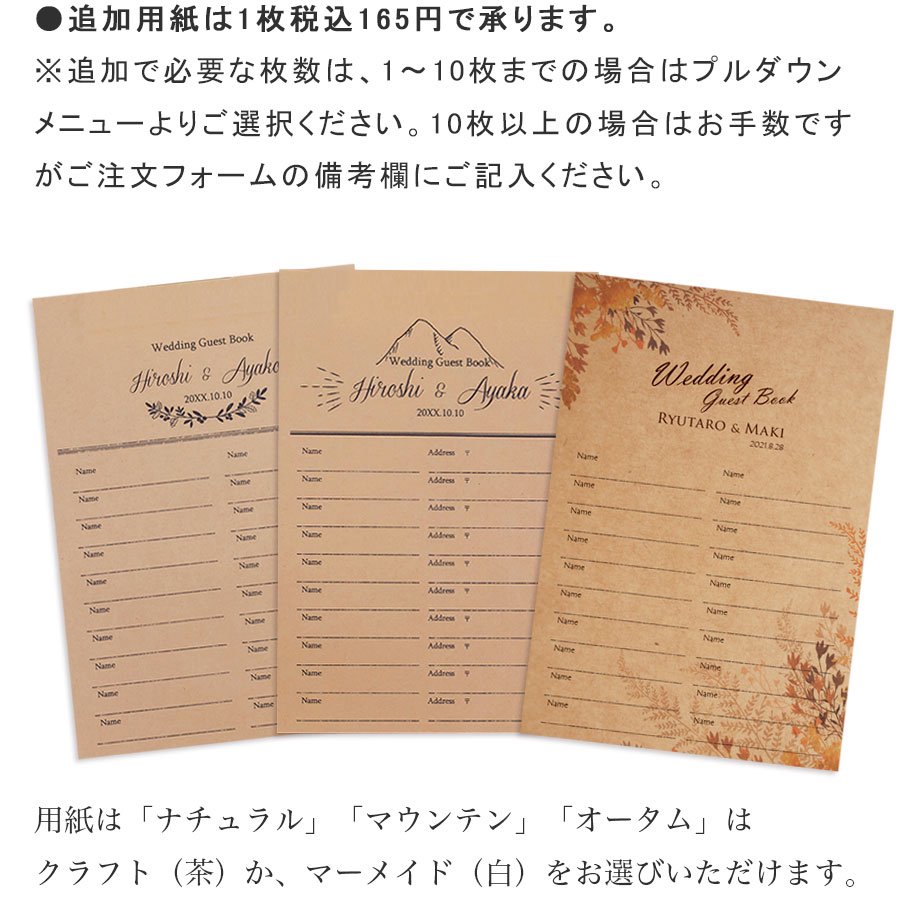 ●追加用紙は1枚税込165円で承ります。
※追加で必要な枚数は、1～10枚までの場合はプルダウン
メニューよりご選択ください。10枚以上の場合はお手数です
がご注文フォームの備考欄にご記入ください。
Wedding Guest Book
Hiroshi & Ayaka
20XX.10.10
Name
Name
Name
Name
Name
Name
Name
Name
Name
Name
Name
Name
Name
Name
Name
Name
Name
Name
Name
Name
Wedding Guest Book
Hiroshi & Ayaka
20XX.10.10
Name Address 〒
Name Address 〒
Name Address 〒
Name Address 〒
Name Address 〒
Name Address 〒
Name Address 〒
Name Address 〒
Name Address 〒
Name Address 〒
Wedding
Guest Book
RYUTARO & MAKI
2021.8.28
Name Name
Name Name
Name Name
Name Name
Name Name
Name Name
Name Name
Name Name
Name Name
Name Name
用紙は「ナチュラル」「マウンテン」「オータム」は
クラフト（茶）か、マーメイド（白）をお選びいただけます。